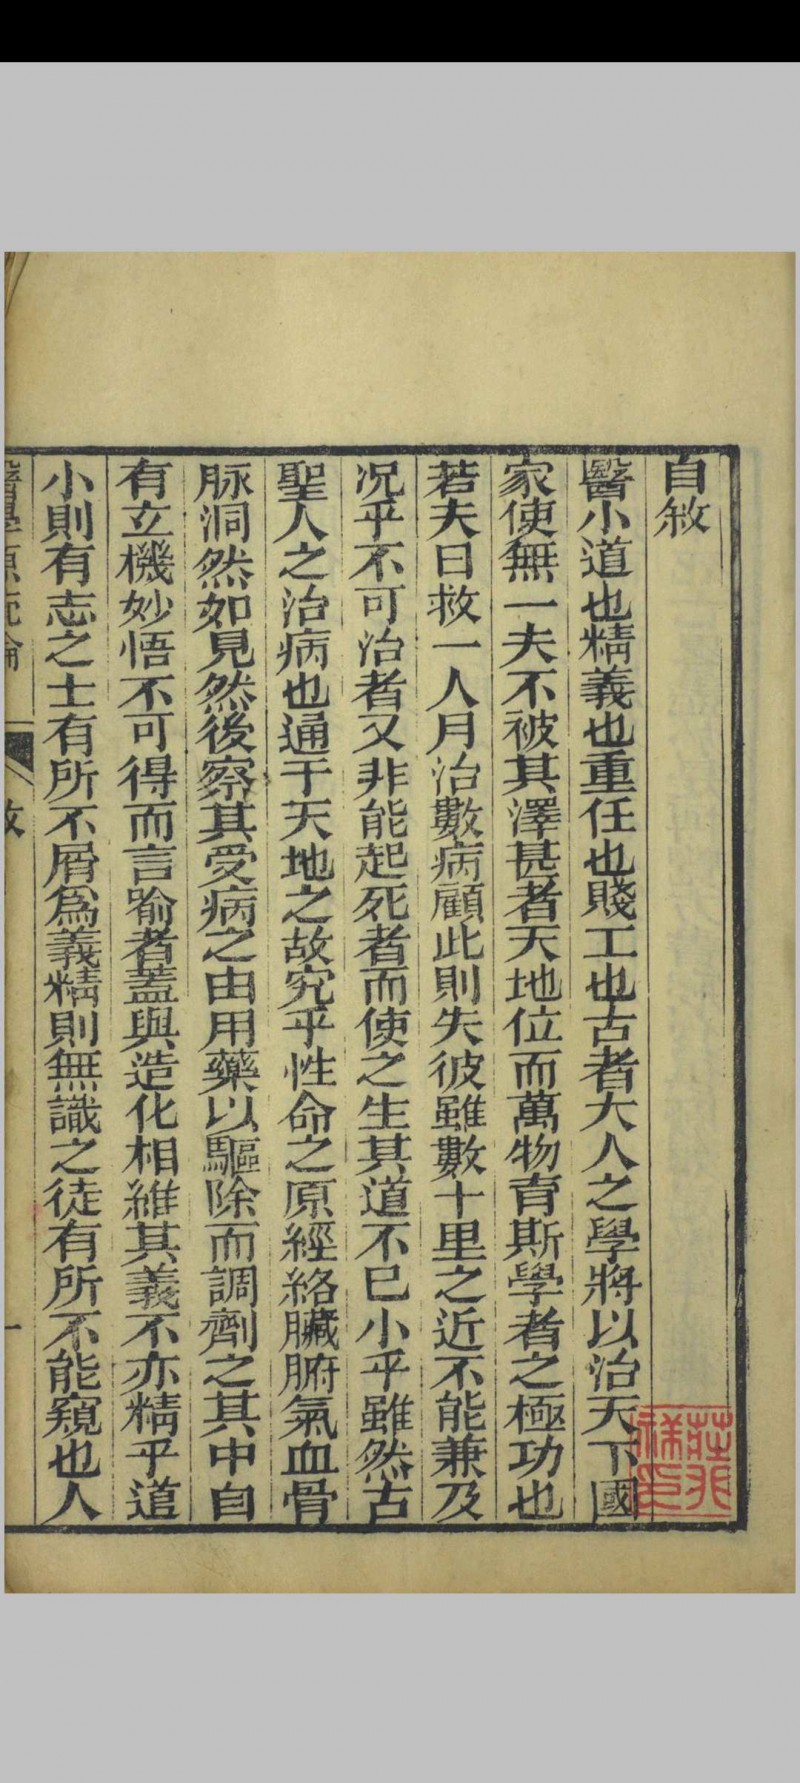 自敘
醫小道也精義也重任也賤工也古者大人之學將以治天下國
家使無一夫不被其澤甚者天地位而萬物育斯學者之極功也
若夫日救一人月治數病顧此則失彼雖數十里之近不能兼及
况乎不可治者又非能起死者而使之生其道不已小乎雖然古
聖人之治病也通于天地之故究乎性命之原經絡臟腑氣血骨
脉洞然如見然後察其受病之由用藥以驅除而調劑之其中自
有立機妙悟不可得而言喻者蓋與造化相維其義不亦精乎道
小則有志之士有所不屑爲義精則無識之徒有所不能窺也人
醫學源流論
敘
一